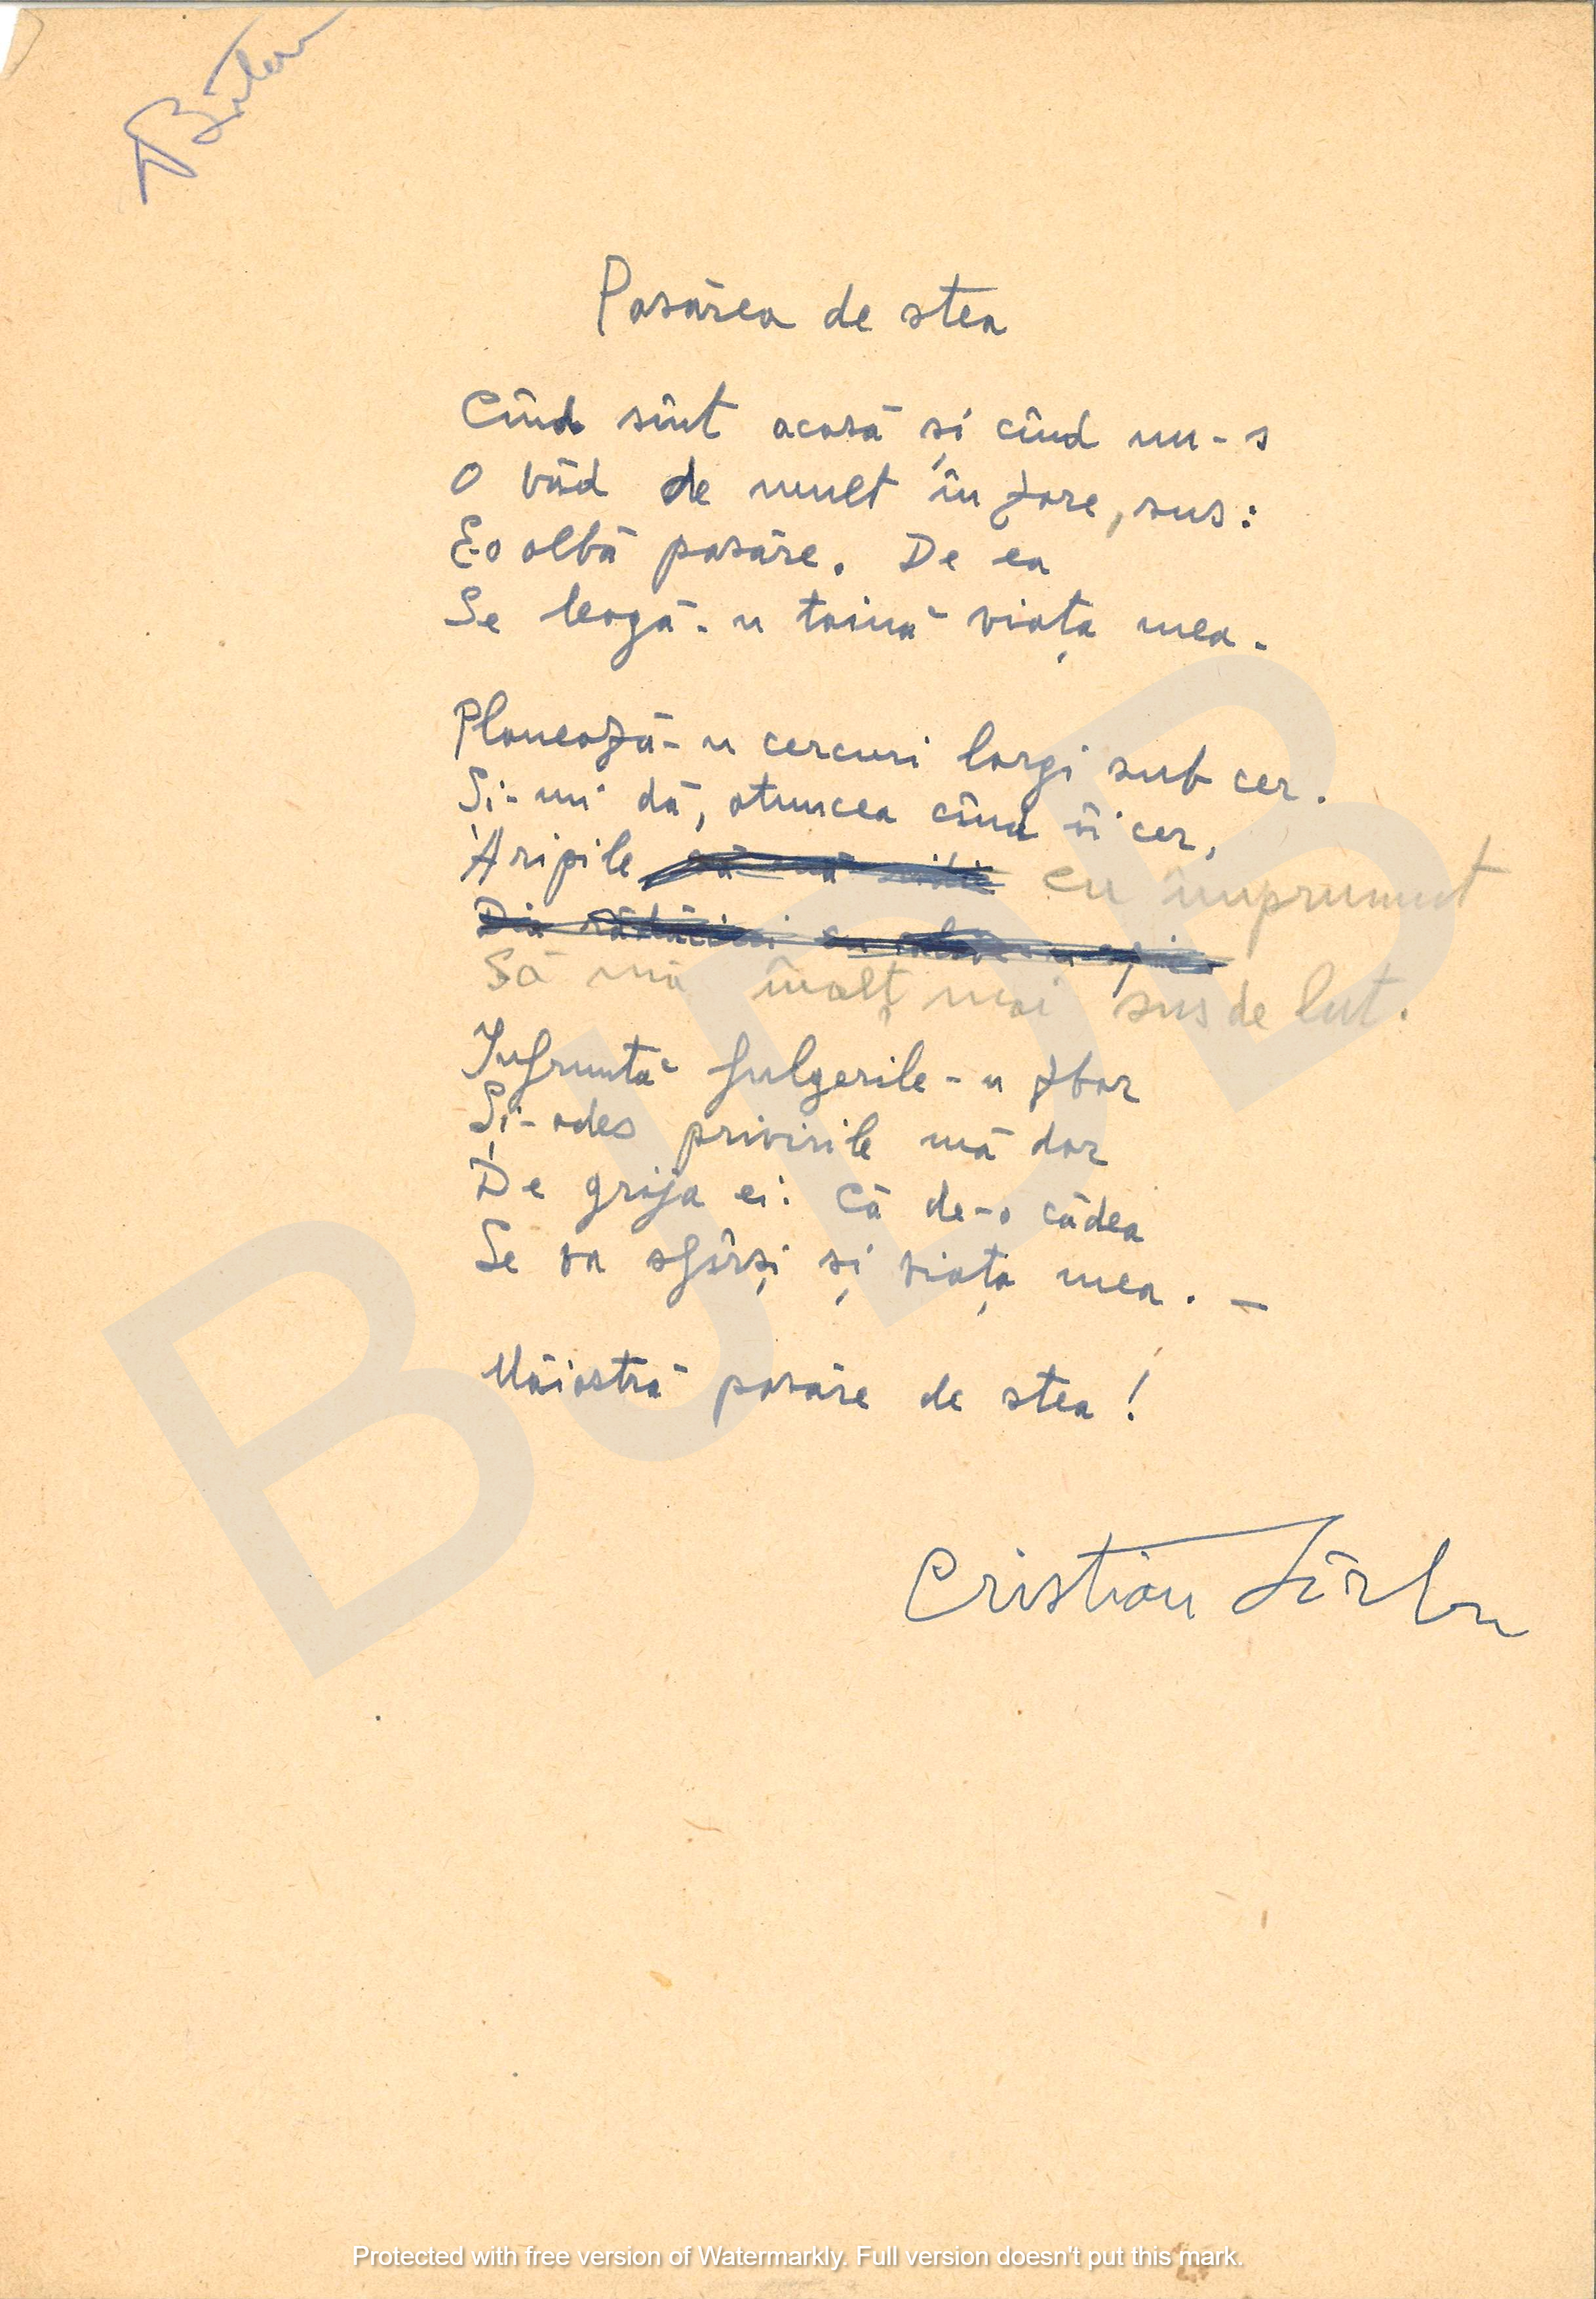 Pasărea de stea
Cînd sînt acasă și cînd nu-s
O văd de mult în zare, sus:
E-o albă pasăre. De ea
Se leagă-n taină viața mea.
Planează-n cercuri largi sub cer.
Și-mi dă, atuncea cînd îi cer,
Aripile cu împrumut
Să mă înalț mai sus de lut.
Înfruntă fulgerile-n zbor
Și-ades privirile mă dor
De grija ei: Că de-o cădea
Se va sfârși și viața mea. —
Măiastră pasăre de stea!
Cristian Sârbu
BJDB
Protected with free version of Watermarkly. Full version doesn't put this mark.